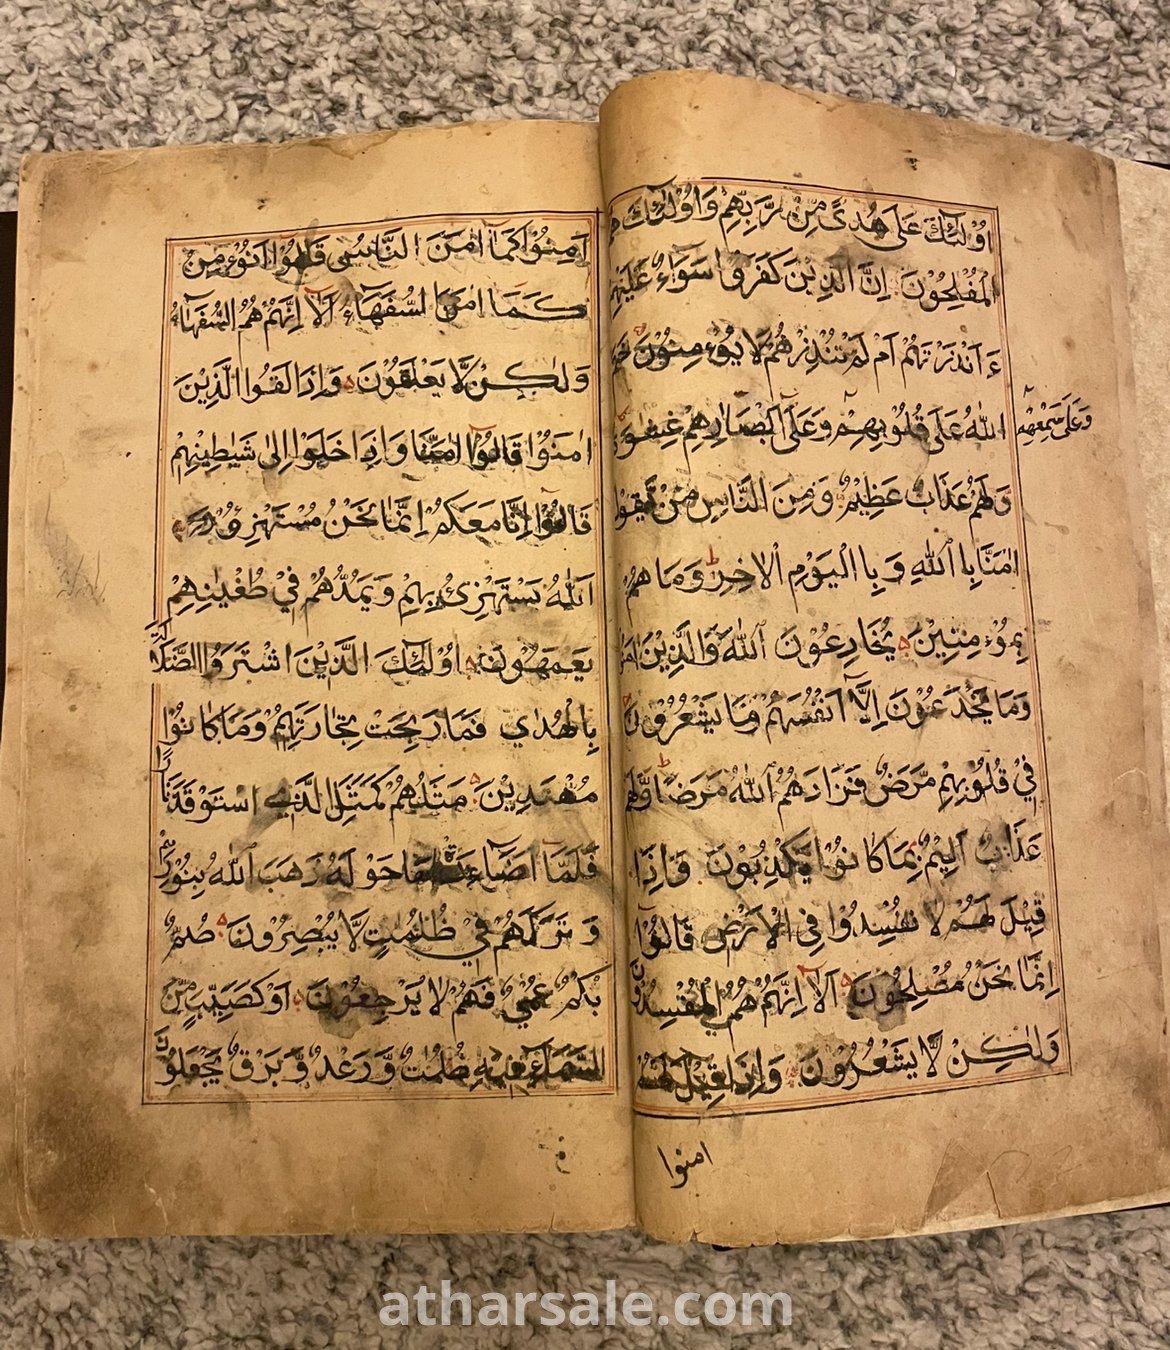 اُولٰٓئِكَ عَلٰى هُدًى مِّنْ رَّبِّهِمْ وَاُولٰٓئِكَ هُمُ
الْمُفْلِحُوْنَ اِنَّ الَّذِيْنَ كَفَرُوْا سَوَآءٌ عَلَيْهِمْ
ءَاَنْذَرْتَهُمْ اَمْ لَمْ تُنْذِرْهُمْ لَا يُؤْمِنُوْنَ خَتَمَ
اللّٰهُ عَلٰى قُلُوْبِهِمْ وَعَلٰٓى اَبْصَارِهِمْ غِشَاوَةٌ
وَعَلٰى سَمْعِهِمْ
وَلَهُمْ عَذَابٌ عَظِيْمٌ وَمِنَ النَّاسِ مَنْ يَّقُوْلُ
اٰمَنَّا بِاللّٰهِ وَبِاالْيَوْمِ الْاٰخِرِ وَمَا هُمْ
بِمُؤْمِنِيْنَ يُخَادِعُوْنَ اللّٰهَ وَالَّذِيْنَ اٰمَنُوْا
وَمَا يَخْدَعُوْنَ اِلَّآ اَنْفُسَهُمْ وَمَا يَشْعُرُوْنَ
فِيْ قُلُوْبِهِمْ مَّرَضٌ فَزَادَهُمُ اللّٰهُ مَرَضًا وَّلَهُمْ
عَذَابٌ اَلِيْمٌ بِمَا كَانُوْا يَكْذِبُوْنَ وَاِذَا
قِيْلَ لَهُمْ لَا تُفْسِدُوْا فِى الْاَرْضِ قَالُوْٓا
اِنَّمَا نَحْنُ مُصْلِحُوْنَ اَلَآ اِنَّهُمْ هُمُ الْمُفْسِدُوْنَ
وَلٰكِنْ لَّا يَشْعُرُوْنَ وَاِذَا قِيْلَ لَهُمْ
امنوا
اٰمِنُوْا كَمَآ اٰمَنَ النَّاسُ قَالُوْٓا اَنُؤْمِنُ
كَمَآ اٰمَنَ السُّفَهَآءُ اَلَآ اِنَّهُمْ هُمُ السُّفَهَآءُ
وَلٰكِنْ لَّا يَعْلَمُوْنَ وَاِذَا لَقُوا الَّذِيْنَ
اٰمَنُوْا قَالُوْٓا اٰمَنَّا وَاِذَا خَلَوْا اِلٰى شَيٰطِيْنِهِمْ
قَالُوْٓا اِنَّا مَعَكُمْ اِنَّمَا نَحْنُ مُسْتَهْزِءُوْنَ
اَللّٰهُ يَسْتَهْزِئُ بِهِمْ وَيَمُدُّهُمْ فِيْ طُغْيٰنِهِمْ
يَعْمَهُوْنَ اُولٰٓئِكَ الَّذِيْنَ اشْتَرَوُا الضَّلٰلَةَ
بِالْهُدٰى فَمَا رَبِحَتْ تِجَارَتُهُمْ وَمَا كَانُوْا
مُهْتَدِيْنَ مَثَلُهُمْ كَمَثَلِ الَّذِي اسْتَوْقَدَ نَارًا
فَلَمَّآ اَضَآءَتْ مَا حَوْلَهٗ ذَهَبَ اللّٰهُ بِنُوْرِهِمْ
وَتَرَكَهُمْ فِيْ ظُلُمٰتٍ لَّا يُبْصِرُوْنَ صُمٌّ
بُكْمٌ عُمْيٌ فَهُمْ لَا يَرْجِعُوْنَ اَوْ كَصَيِّبٍ مِّنَ
السَّمَآءِ فِيْهِ ظُلُمٰتٌ وَّرَعْدٌ وَّبَرْقٌ يَجْعَلُوْنَ
atharsale.com